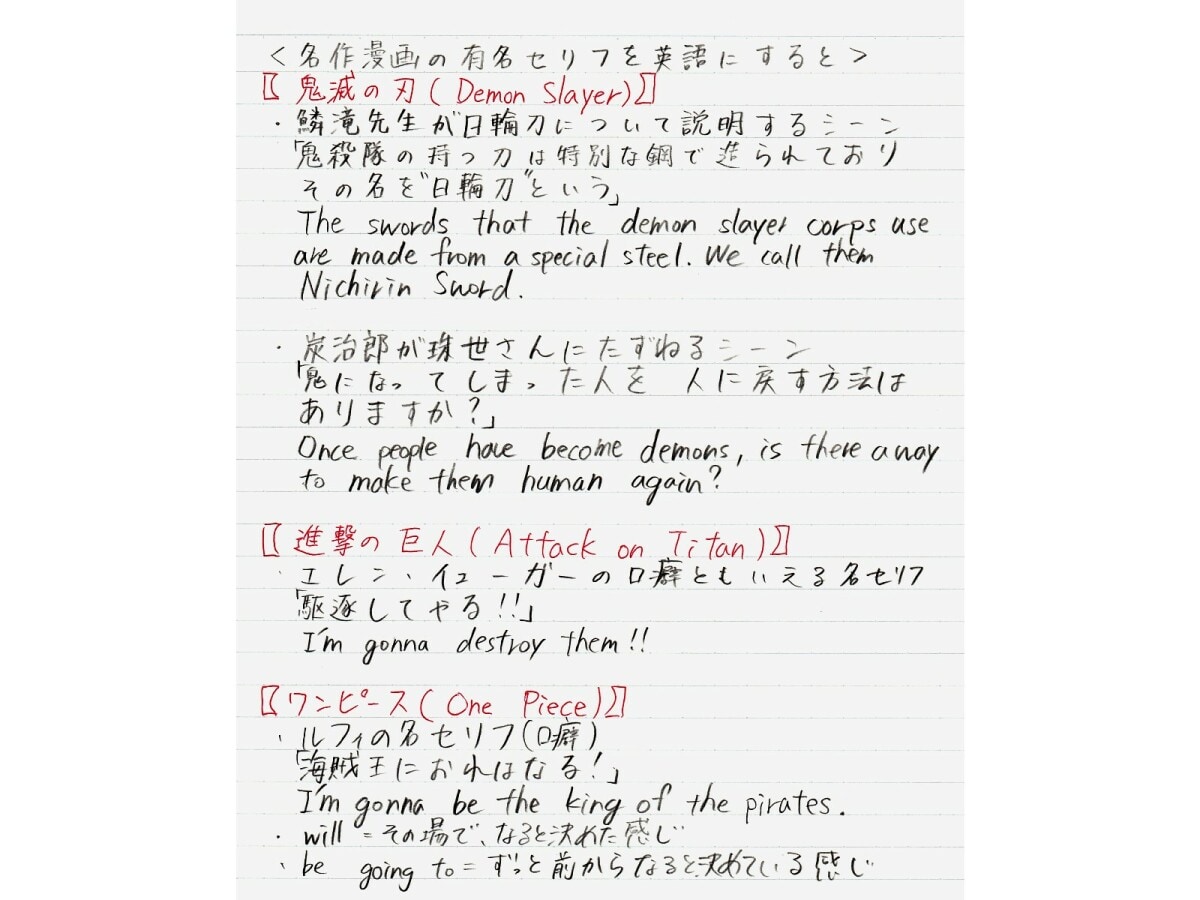 <名作漫画の有名セリフを英語にすると>
〖鬼滅の刃(Demon Slayer)〗
・鱗滝先生が日輪刀について説明するシーン
「鬼殺隊の持つ刀は特別な鋼で造られており
その名を"日輪刀"という」
The swords that the demon slayer corps use
are made from a special steel. We call them
Nichirin Sword.
・炭治郎が珠世さんにたずねるシーン
「鬼になってしまった人を 人に戻す方法は
ありますか?」
Once people have become demons, is there a way
to make them human again?
〖進撃の巨人(Attack on Titan)〗
・エレン・イェーガーの口癖ともいえる名セリフ
「駆逐してやる!!」
I'm gonna destroy them!!
〖ワンピース(One Piece)〗
・ルフィの名セリフ(口癖)
「海賊王におれはなる!」
I'm gonna be the king of the pirates.
・will = その場で、なると決めた感じ
・be going to = ずっと前からなると決めている感じ